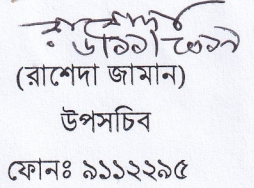 (রাশেদা জামান)
উপসচিব
ফোনঃ ৯১১২২৯৫